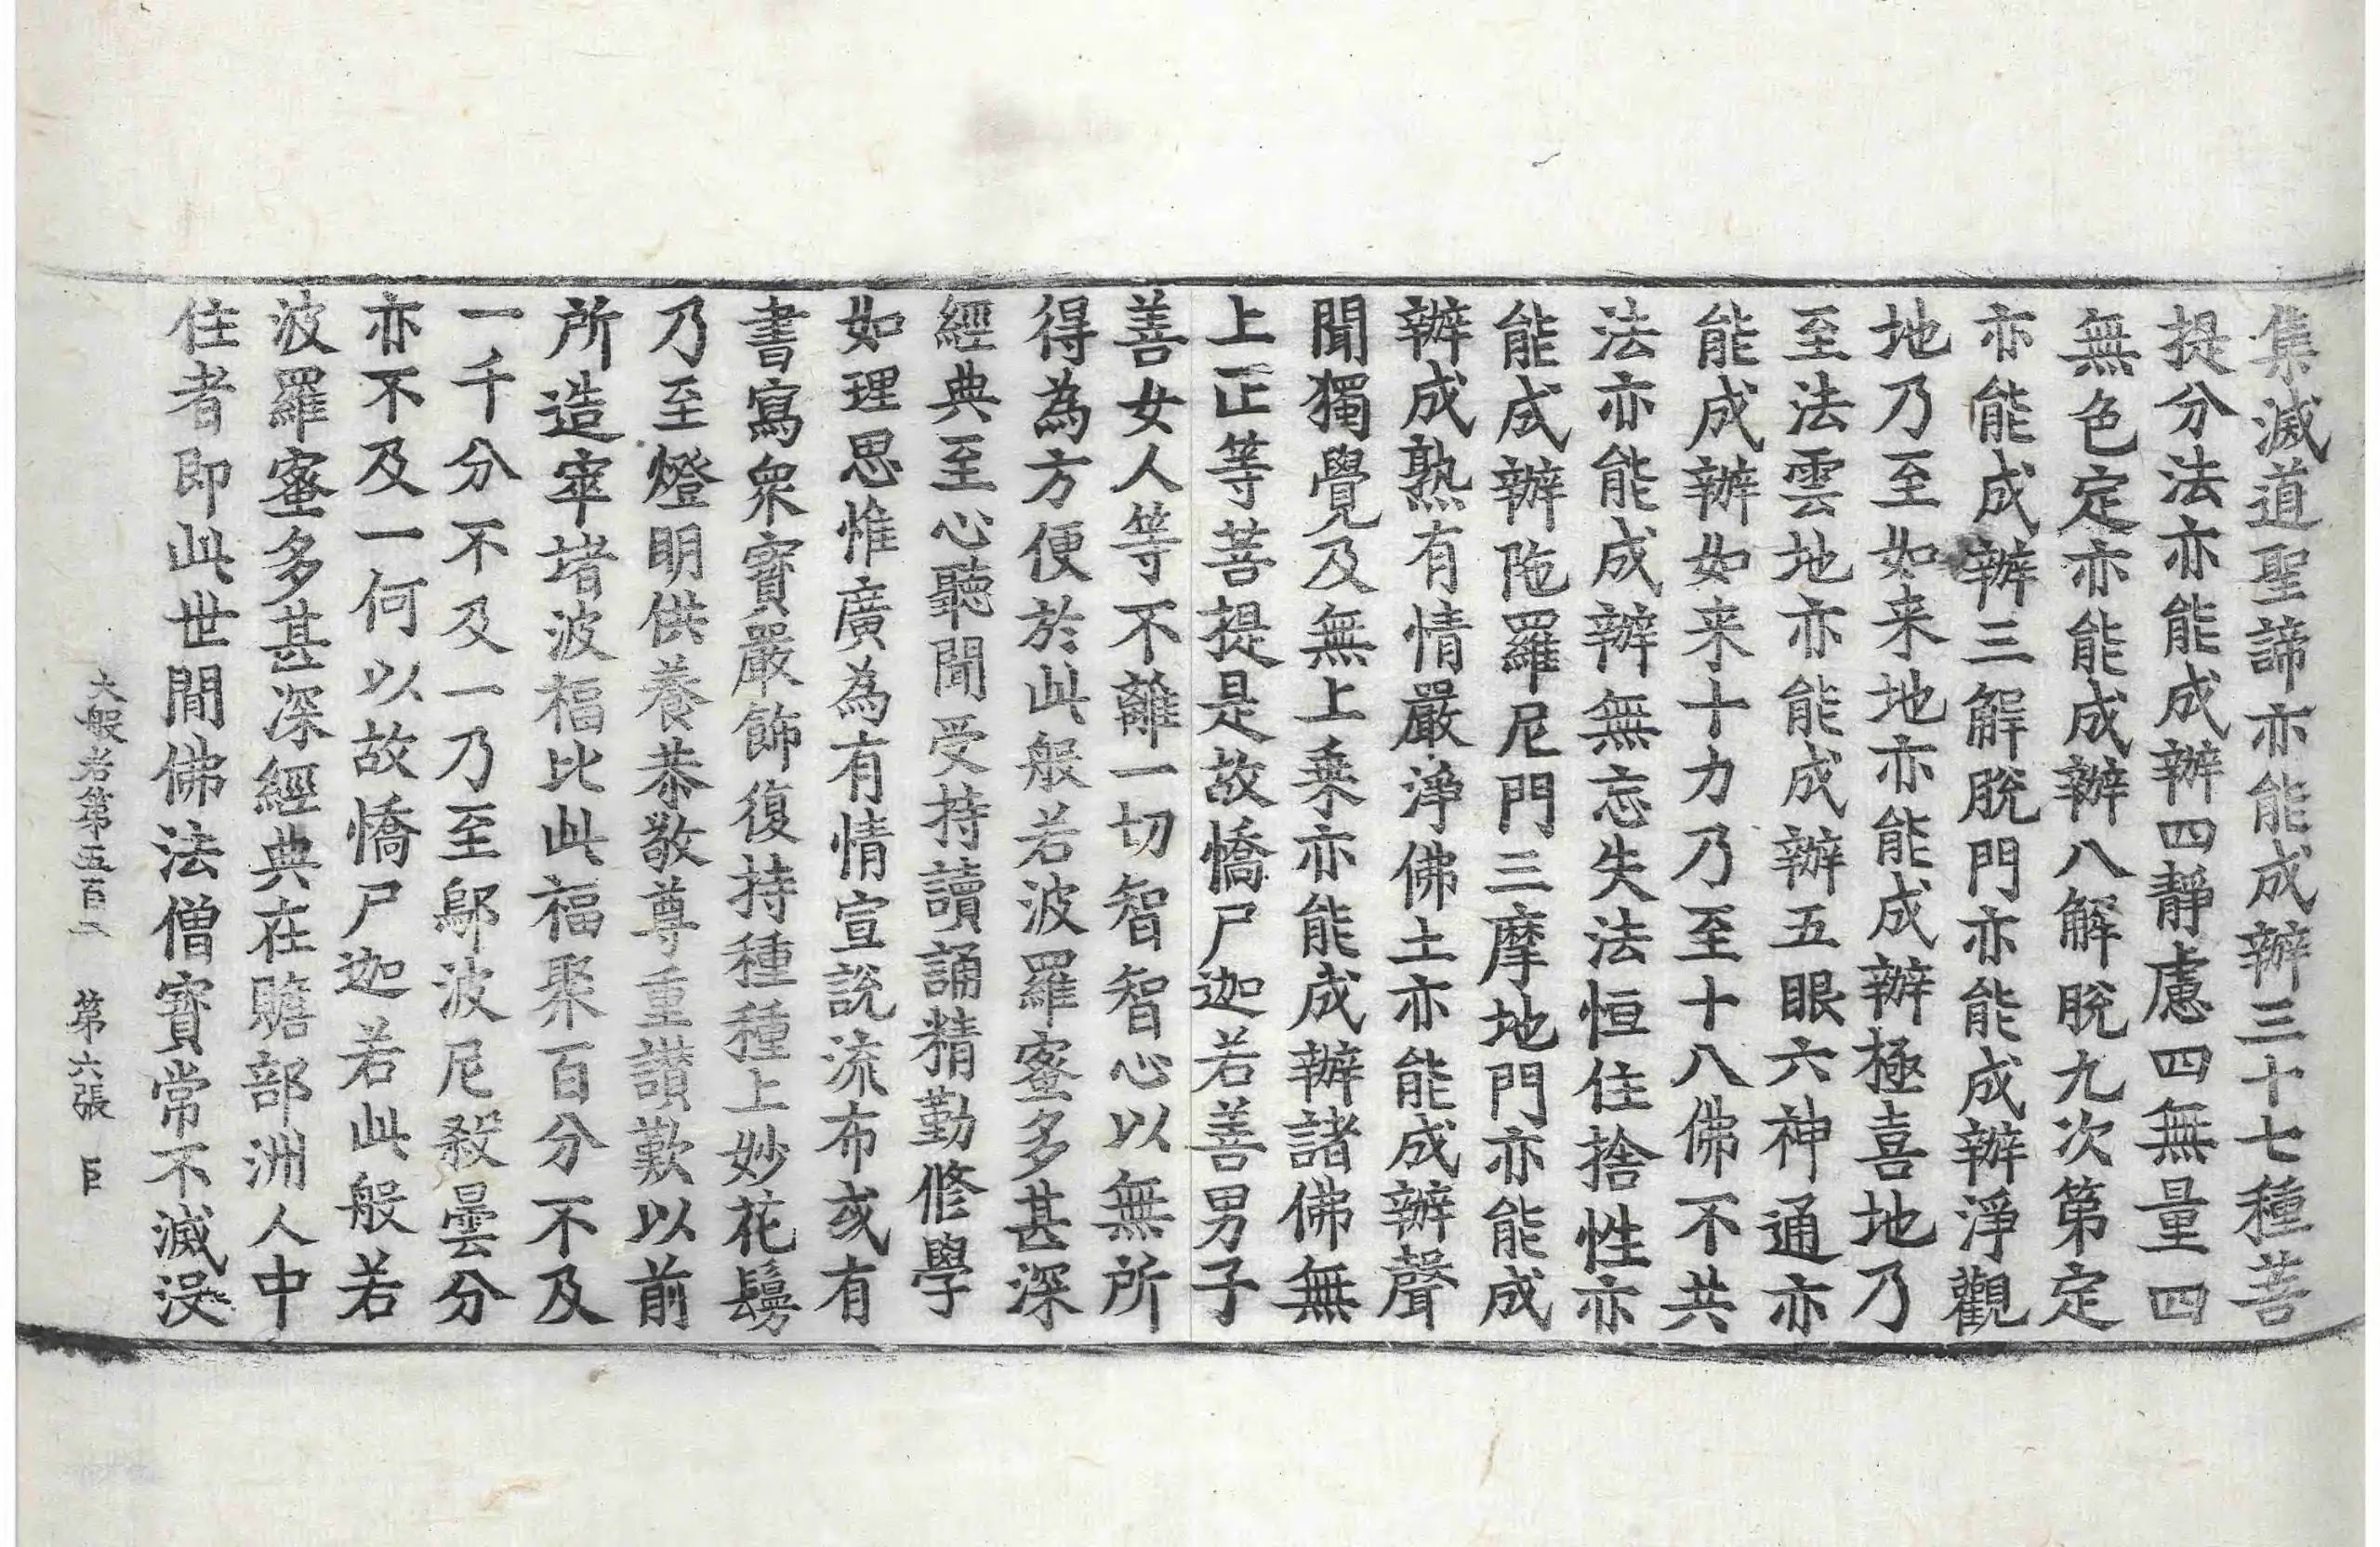 集滅道聖諦亦能成辦三十七種菩
提分法亦能成辦四靜慮四無量四
無色定亦能成辦八解脫九次第定
亦能成辦三解脫門亦能成辦淨觀
地乃至如来地亦能成辦極喜地乃
至法雲地亦能成辦五眼六神通亦
能成辦如来十力乃至十八佛不共
法亦能成辦無忘失法恒住捨性亦
能成辦陁羅尼門三摩地門亦能成
辦成熟有情嚴淨佛土亦能成辦聲
聞獨覺及無上乗亦能成辦諸佛無
上正等菩提是故憍尸迦若善男子
善女人等不離一切智智心以無所
得為方便於此般若波羅蜜多甚深
經典至心聽聞受持讀誦精勤修學
如理思惟廣為有情宣說流布或有
書寫衆寶嚴飾復持種種上妙花鬘
乃至燈明供養恭敬尊重讃歎以前
所造窣堵波福比此福聚百分不及
一千分不及一乃至鄔波尼殺曇分
亦不及一何以故憍尸迦若此般若
波羅蜜多甚深經典在贍部洲人中
住者即此世間佛法僧寶常不滅没
大般若第五百二 第六張 臣